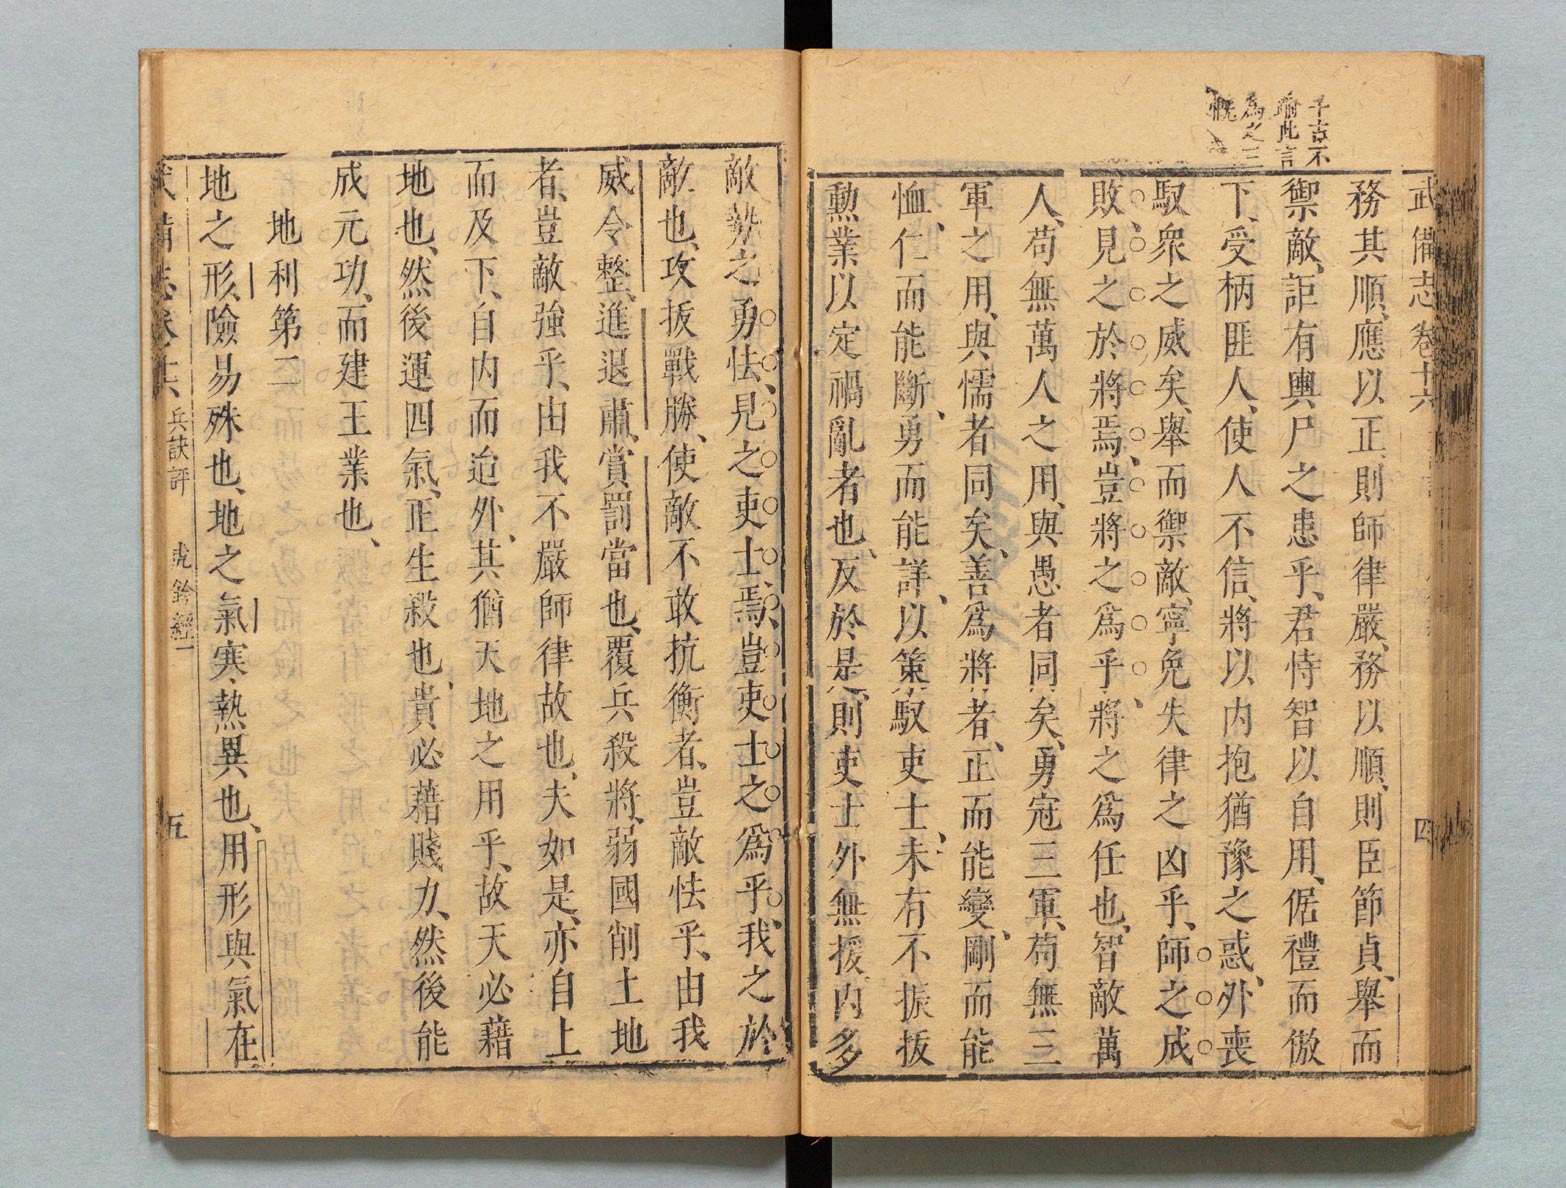 千古不
喻此言
為之三
慨
武備志卷十六
四
務其順、應以正、則師律嚴、務以順、則臣節貞、舉而
禦敵、詎有輿尸之患乎、君恃智以自用、倨禮而傲
下、受柄匪人、使人不信、將以内抱猶豫之惑、外喪
馭衆之威矣、舉而禦敵、寧免失律之凶乎、師之成
敗、見之於將焉、豈將之爲乎、將之爲任也、智敵萬
人、苟無萬人之用、與愚者同矣、勇冠三軍、苟無三
軍之用、與懦者同矣、善爲將者、正而能變、剛而能
恤、仁而能斷、勇而能詳、以策馭吏士、未有不振拔
勲業以定禍亂者也、反於是、則吏士外無援、内多
敵、勢之勇怯、見之吏士焉、豈吏士之爲乎、我之於
敵也、攻拔戰勝、使敵不敢抗衡者、豈敵怯乎、由我
威令整、進退肅、賞罰當也、覆兵殺將、弱國削土地
者、豈敵強乎、由我不嚴師律故也、夫如是、亦自上
而及下、自内而迨外、其猶天地之用乎、故天必藉
地也、然後運四氣、正生殺也、貴必藉賤力、然後能
成元功、而建王業也、
地利第二
地之形、險易殊也、地之氣、寒熱異也、用形與氣、在
武備志卷十六 兵訣評 虎鈐經一
五